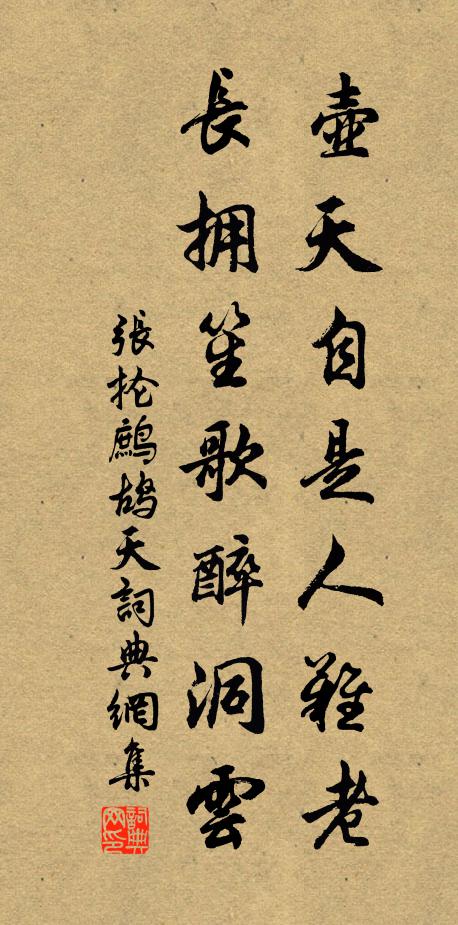 壺天自是人難老
長擁笙歌醉洞雲
張掄鷓鴣天詞典網集
詞典网印